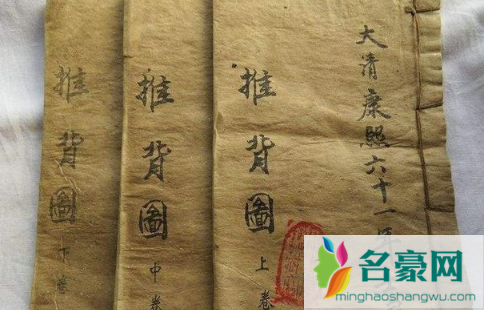 大清康熙六十一年
推背圖
上卷
推背圖
中卷
推背圖
下卷
名豪网
minghaoshangwu.com